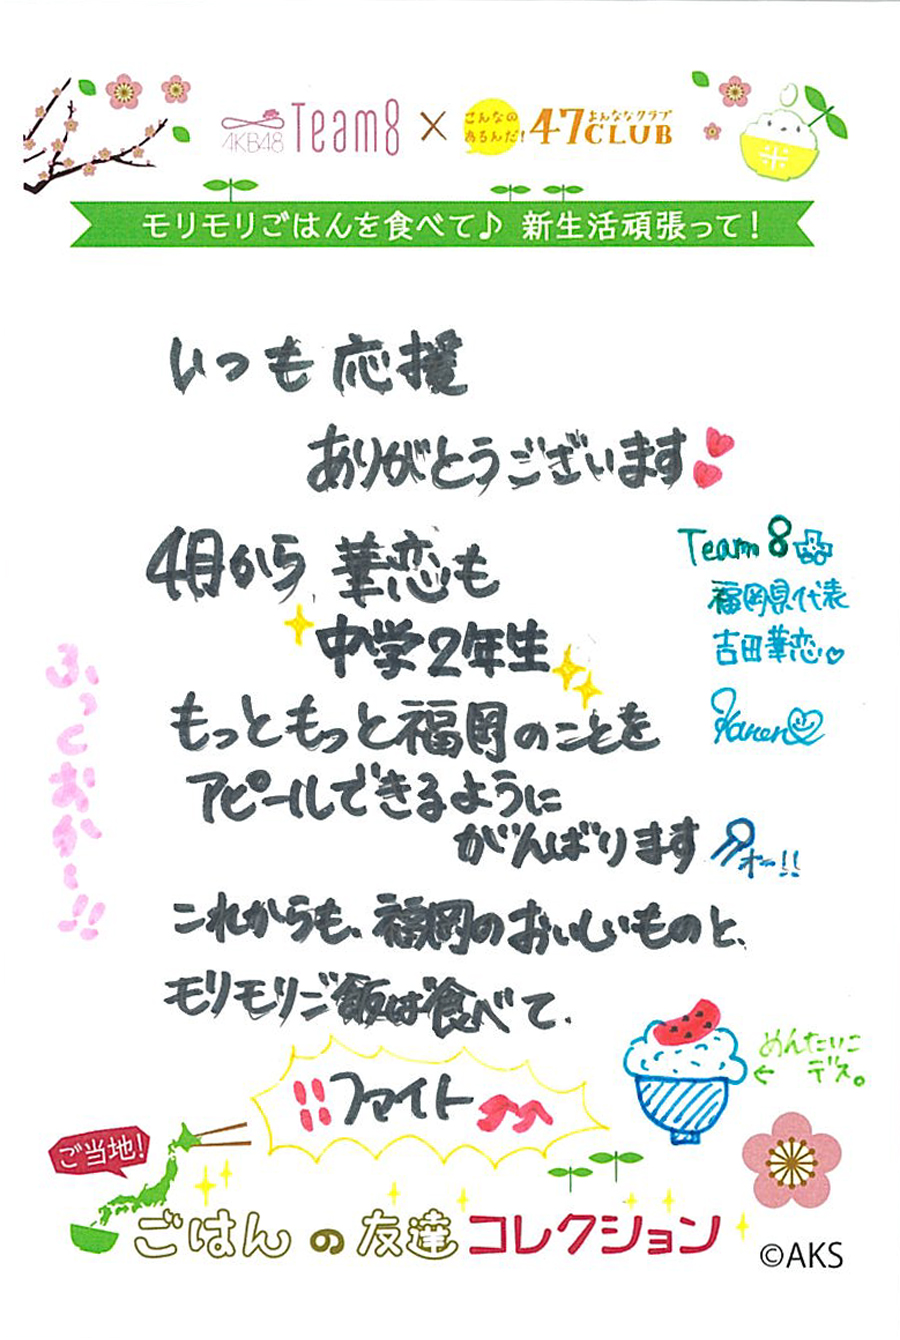 AKB48 Team8 × こんなのあるんだ! 47CLUB よんななクラブ
米
モリモリごはんを食べて♪ 新生活頑張って!
いつも応援
ありがとうございます
Team 8
福岡県代表
吉田華恋♡
Karen
4月から 華恋も
中学2年生
もっともっと福岡のことを
アピールできるように
がんばります
オー!!
ふっくおか~!!
これからも、福岡のおいしいものと、
モリモリご飯ば食べて、
!!ファイト
めんたいこ
デス。
ご当地!
ごはんの友達コレクション
©AKS